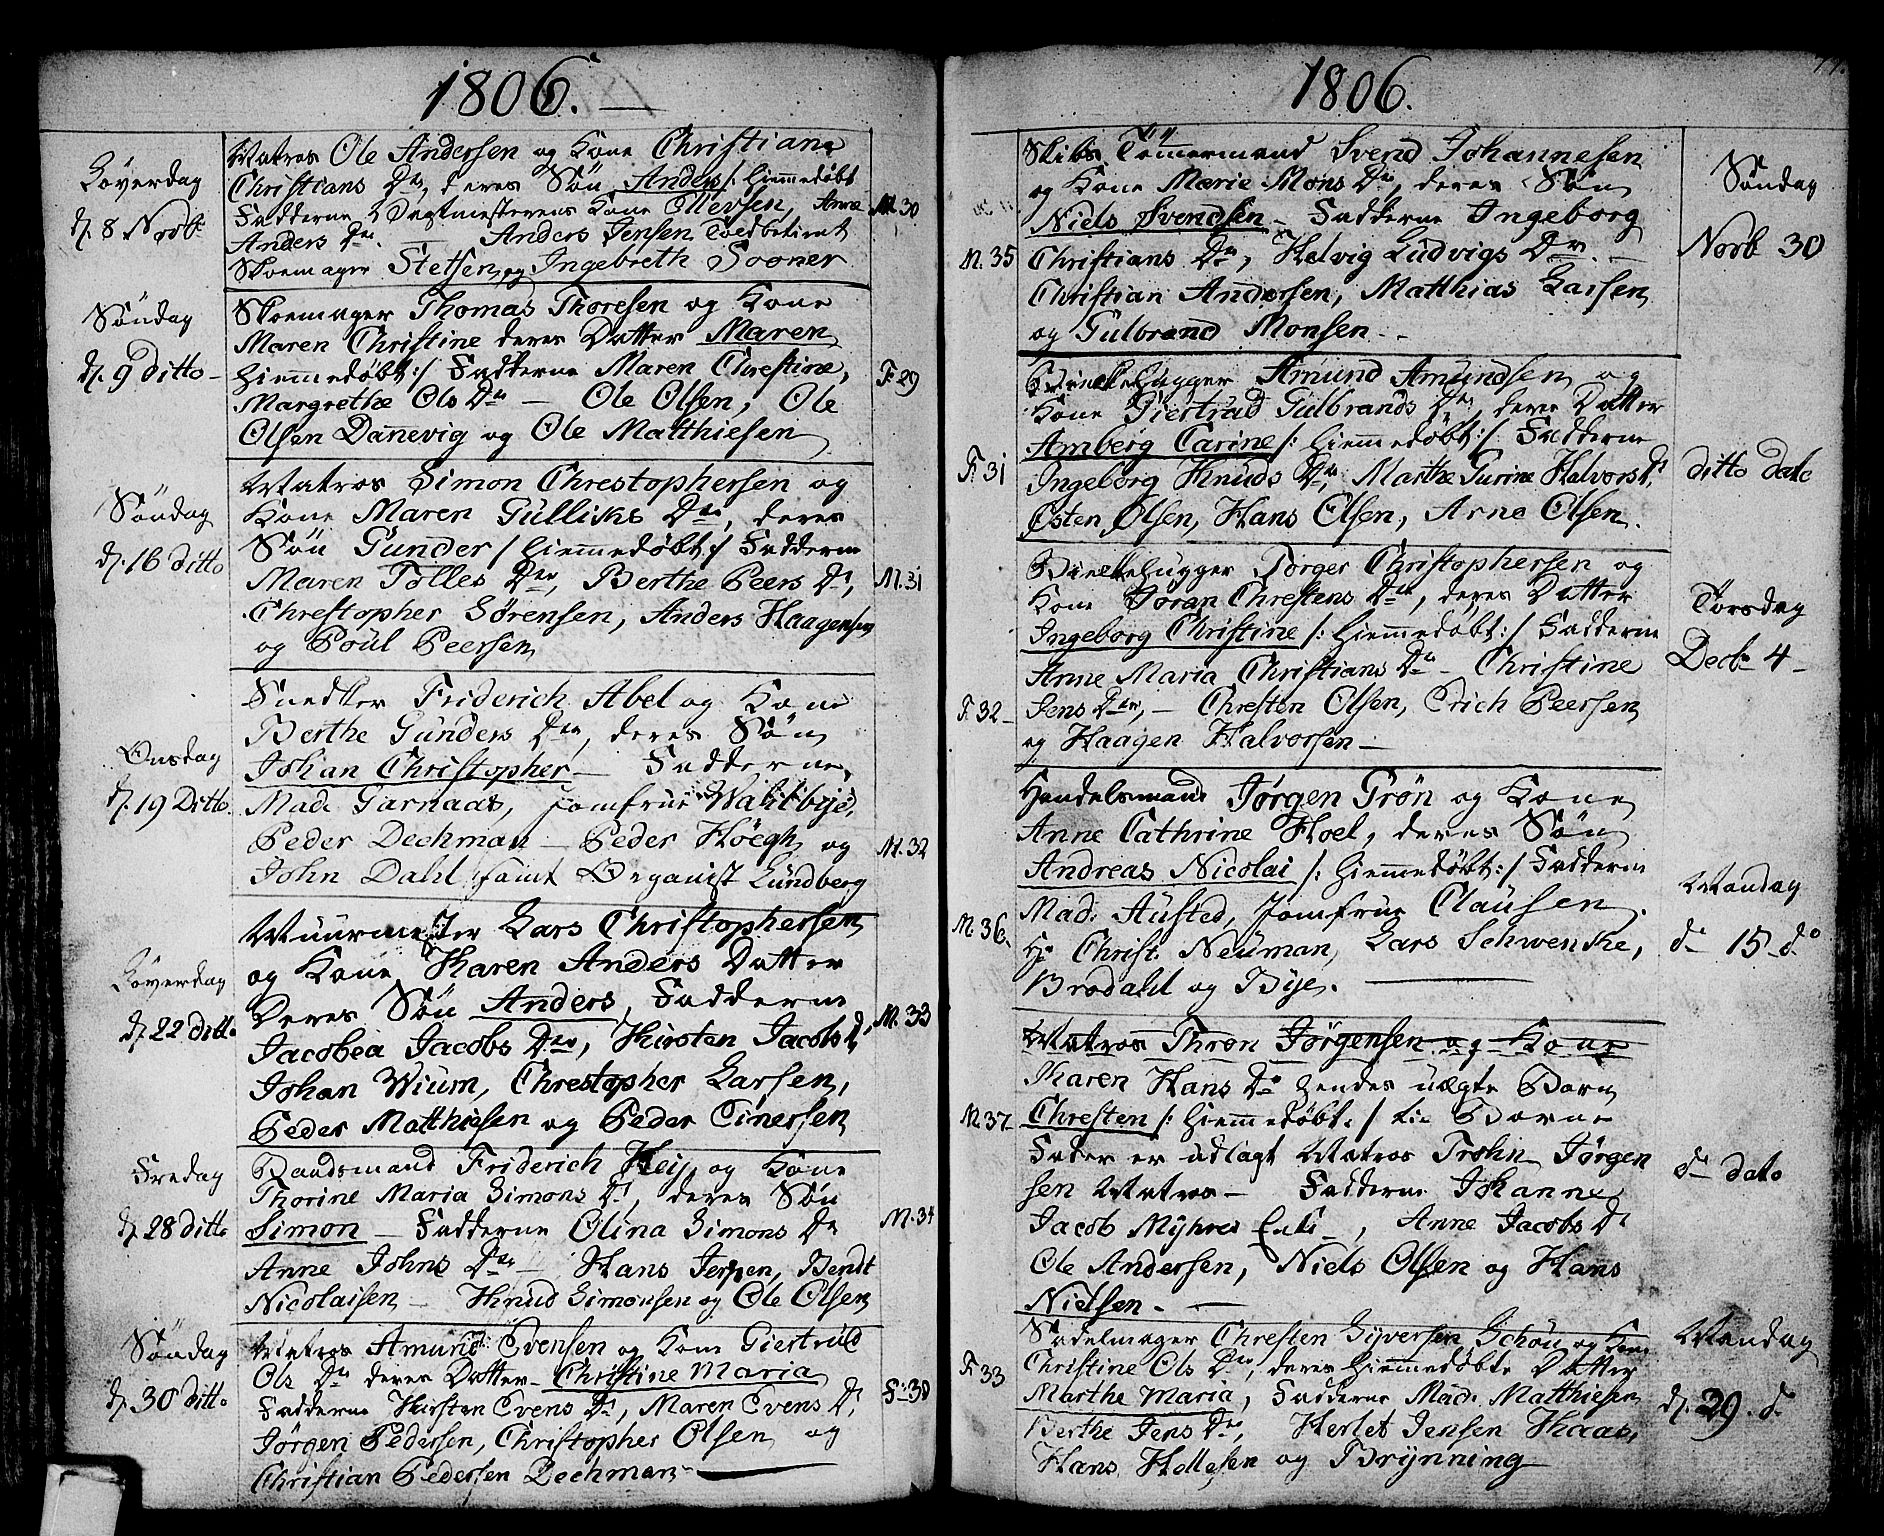 1806.
Løverdag
d. 8 Novb.
Matros Ole Andersen og Kone Christiane
Christians Dr, deres Søn Anders /: hiemmedøbt
Fadderne Vagtmesterens Kone Ollevsen, Anne
Anders Dr. — Anders Jensen Toldbetient
Skoemager Stetsen og Ingebreth Sooner
M. 30
Søndag
d. 9 ditto –
Skoemager Thomas Thoresen og Kone
Maren Christine deres Datter Maren
hiemmedøbt :/ Fadderne Maren Christine,
Margrethe Ols Dr — Ole Olsen, Ole
Olsen Danevig og Ole Matthiesen
F. 29
Søndag
d. 16 ditto
Matros Simon Chrestophersen og
Kone Maren Gulliks Dr, deres
Søn Gunder / hiemmedøbt :/ Fadderne
Maren Tolles Dr, Berthe Peers Dr,
Chrestopher Sørensen, Anders Haagensen
og Poul Peersen
M. 31
Onsdag
d. 19 Ditto.
Snedker Friderich Abel og Kone
Berthe Gunders Dr, deres Søn
Johan Christopher — Fadderne
Mad. Garnaas, Jomfrue
Peder Dechman — Peder Høegh og
John Dahl samt Organist Lundberg
M. 32
Løverdag
d. 22 ditto
Muurmester Lars Christophersen
og Kone Karen Anders Datter
Deres Søn Anders, Fadderne
Jacobea Jacobs Dr, Kirsten Jacobs D,
Johan Wium, Chrestopher Larsen,
Peder Matthiesen og Peder Einersen
M. 33
Fredag
d. 28 ditto
Baadsmand Friderich og Kone
Thorine Maria Simons D, deres Søn
Simon — Fadderne Olina Simons Dr
Anne Johns Dr — Hans Jensen, Bendt
Nicolaisen — Knud Simonsen og Ole Olsen
M. 34
Søndag
d. 30 ditto
Matros Amund Evensen og Kone Giertrud
Ols Dr deres Datter – Christine Maria
Fadderne Kirsten Evens D, Maren Evens D,
Jørgen Pedersen, Christopher Olsen og
Christian Pedersen Dechman —
F. 30
1806.
M. 35
Skibs Tømmermand Svend Johannesen
og Kone Marie Mons Dr, deres Søn
Niels Svendsen – Fadderne Ingeborg
Christians Dr, Helvig Ludvigs Dr. –
Christian Andersen, Matthias Larsen
og Gulbrand Monsen –
Søndag
Novb 30
F. 31
Amund Amundsen og
Kone Giertrud Gulbrands Dr, deres Datter
Amberg Carine /: hiemmedøbt :/ Fadderne
Ingeborg Knuds Dr, Marthe Gurine Halvors D,
Osten Olsen, Hans Olsen, Arne Olsen.
ditto dato
F. 32 –
Torger Christophersen og
Kone Joran Chrestens Dr, deres Datter
Ingeborg Christine /: hiemmedøbt :/ Fadderne
Anne Maria Christians Dr – Christine
Jens Dr, – Chresten Olsen, Erich Peersen
og Haagen Halvorsen —
Torsdag
Decb 4 –
M. 36.
Handelsmand Jørgen Grøn og Kone
Anne Cathrine Hoel, deres Søn
Andreas Nicolai /: hiemmedøbt :/ Fadderne
Mad. Austed, Jomfrue Clausen.
Hr Christ. Neuman, Lars Schwenke,
Brodahl og Bye. —
Mandag
d– 15 d–o
M. 37
Matros Thron Jørgensen og Kone
Karen Hans Dr hendes uægte Barn
Chresten /: hiemmedøbt. / til Barne
Fader er udlagt Matros Trohn Jørgen
sen Matros – Fadderne Johanne
Jacob Myhres Enke, Anne Jacobs D
Ole Andersen, Niels Olsen og Hans
Nielsen. —
d– dato
F. 33
Sadelmager Chresten Syversen Schou og Kone
Christine Ols Dr, deres hiemmedøbte Datter
Marthe Maria, Fadderne Mad. Matthiesen
Berthe Jens Dr, Herlet Jensen Haas,
Hans Hellesen og Brynning
Mandag
d. 29. d–